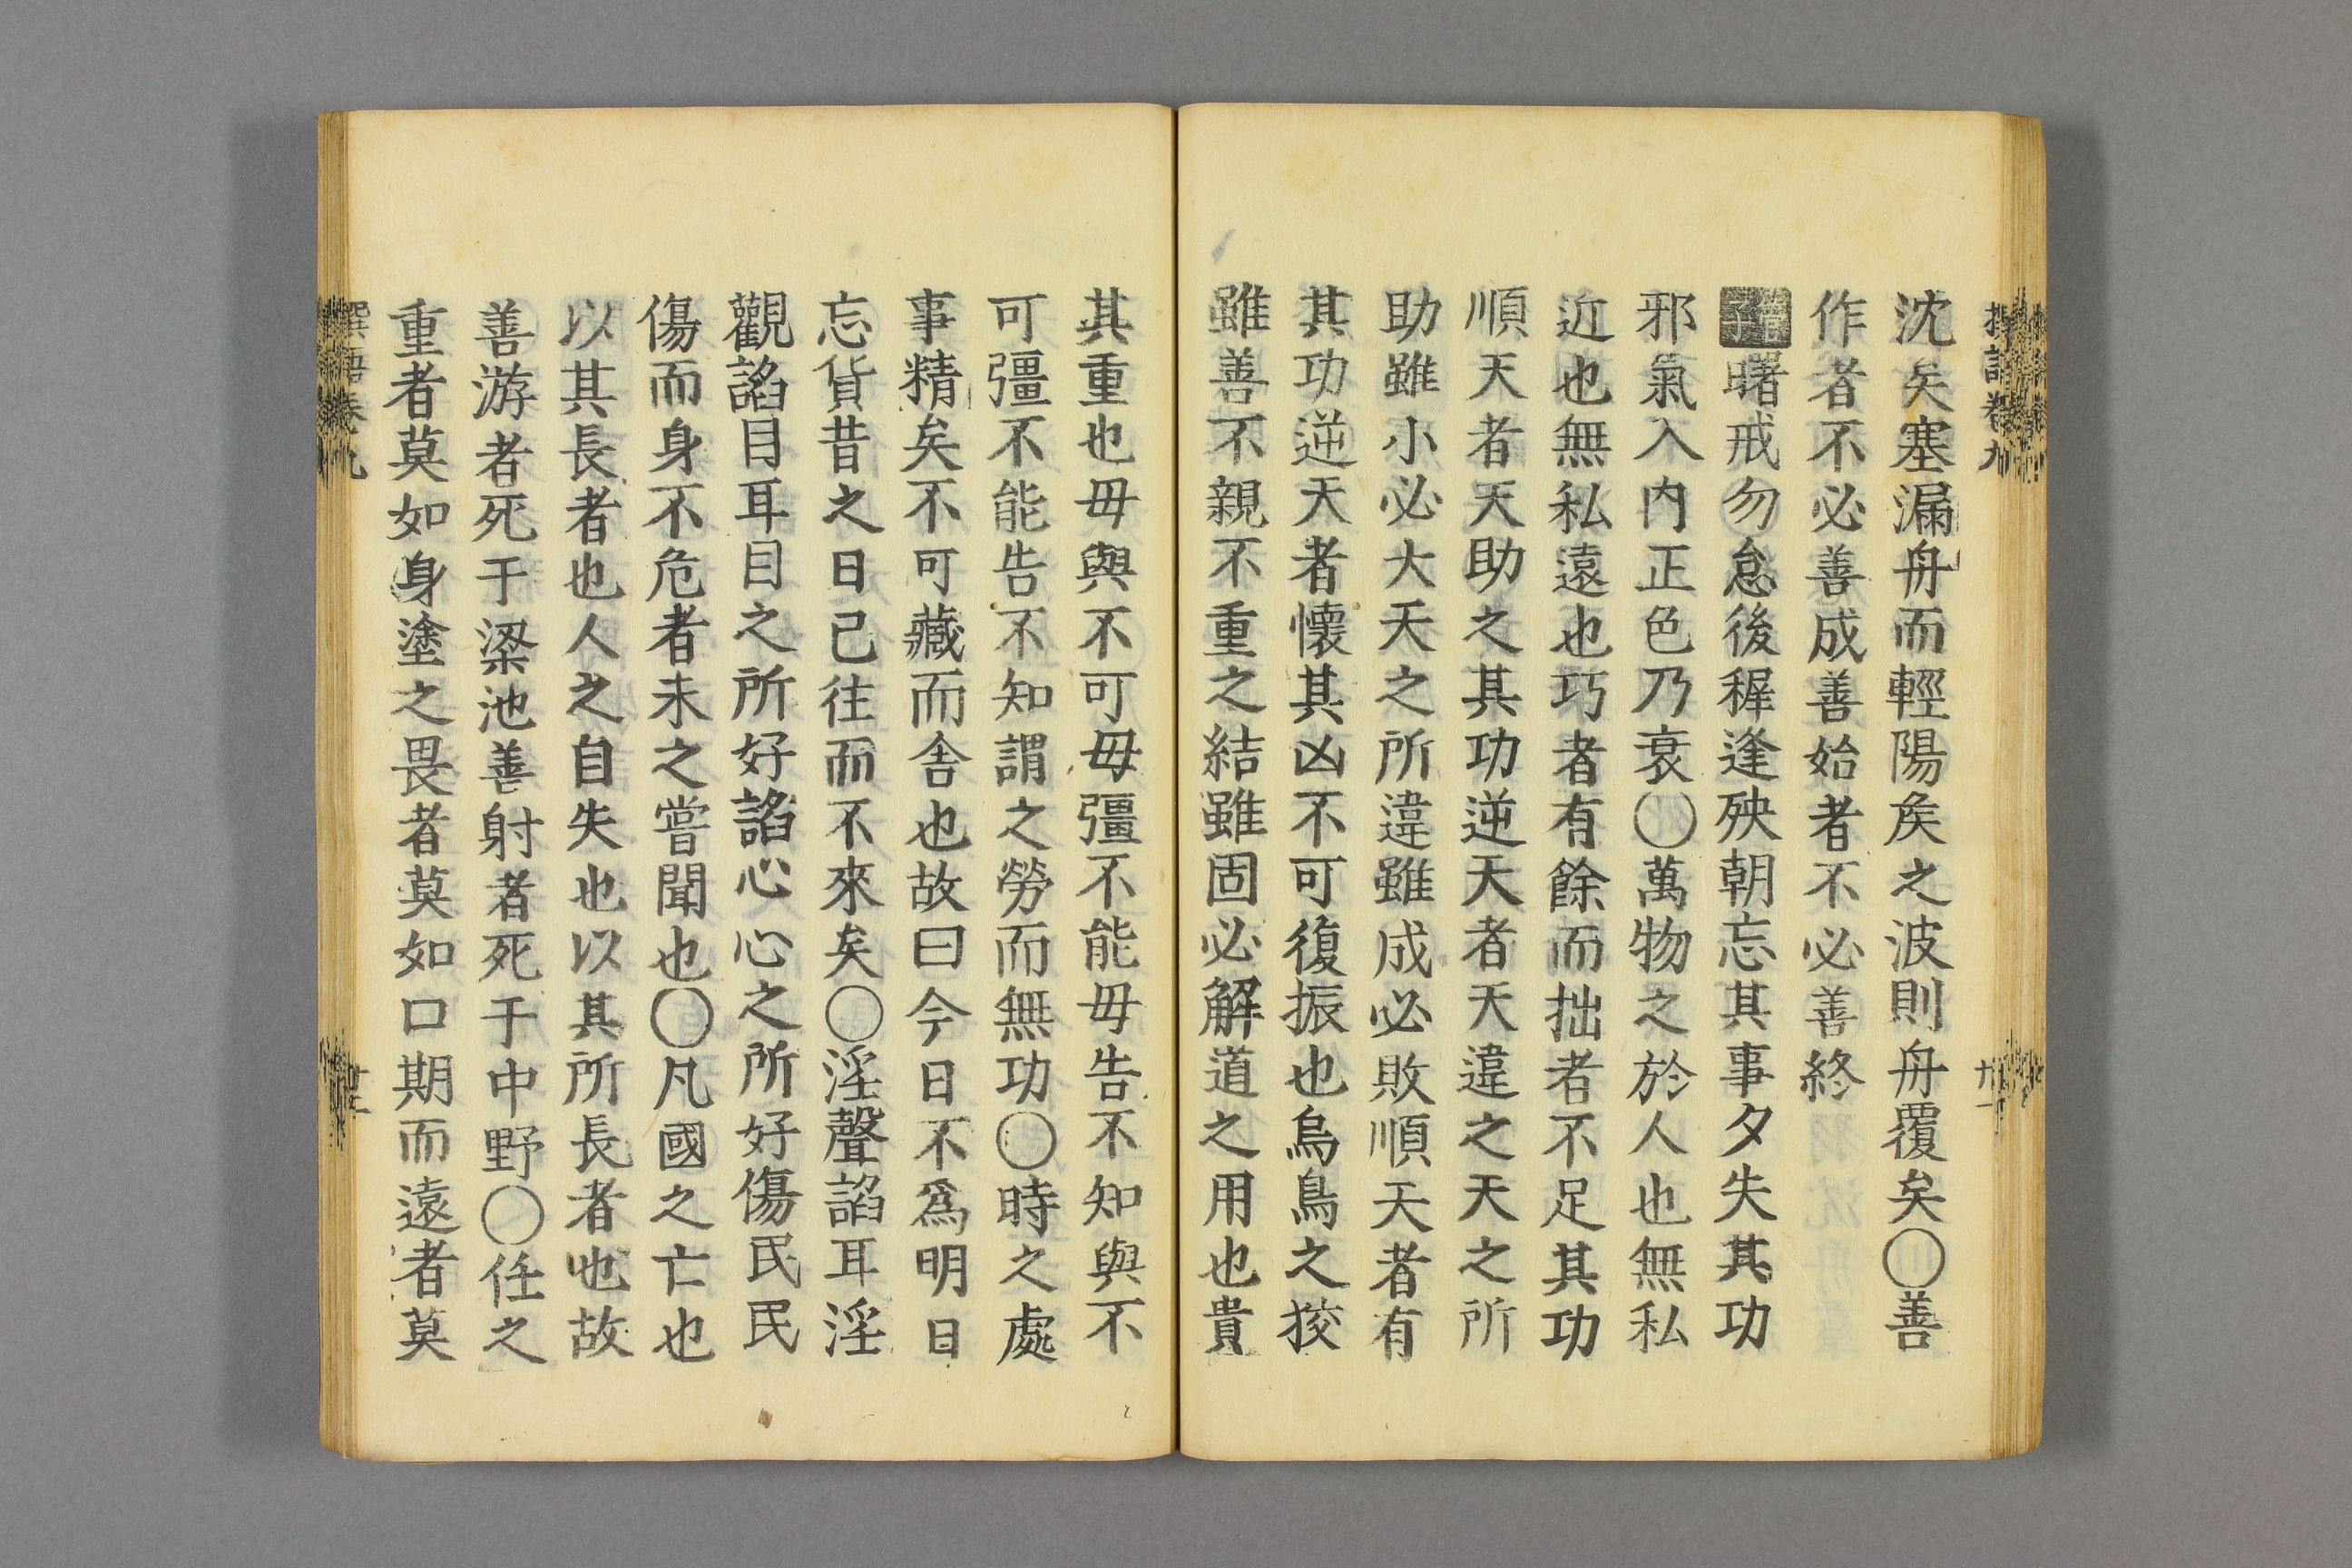 沈矣塞漏舟而輕陽矦之波則舟覆矣○善
作者不必善成善始者不必善終
管子曙戒勿怠後稺逢殃朝忘其事夕失其功
邪氣入內正色乃衰○萬物之於人也無私
近也無私遠也巧者有餘而拙者不足其功
順天者天助之其功逆天者天違之天之所
助雖小必大天之所違雖成必敗順天者有
其功逆天者懷其凶不可復振也烏鳥之狡
雖善不親不重之結雖固必解道之用也貴
其重也毋與不可毋彊不能毋告不知與不
可彊不能告不知謂之勞而無功○時之處
事精矣不可藏而舍也故曰今日不爲明日
忘貨昔之日已往而不來矣○淫聲諂耳淫
觀諂目耳目之所好諂心心之所好傷民民
傷而身不危者未之嘗聞也○凡國之亡也
以其長者也人之自失也以其所長者也故
善游者死于梁池善射者死于中野○任之
重者莫如身塗之畏者莫如口期而遠者莫